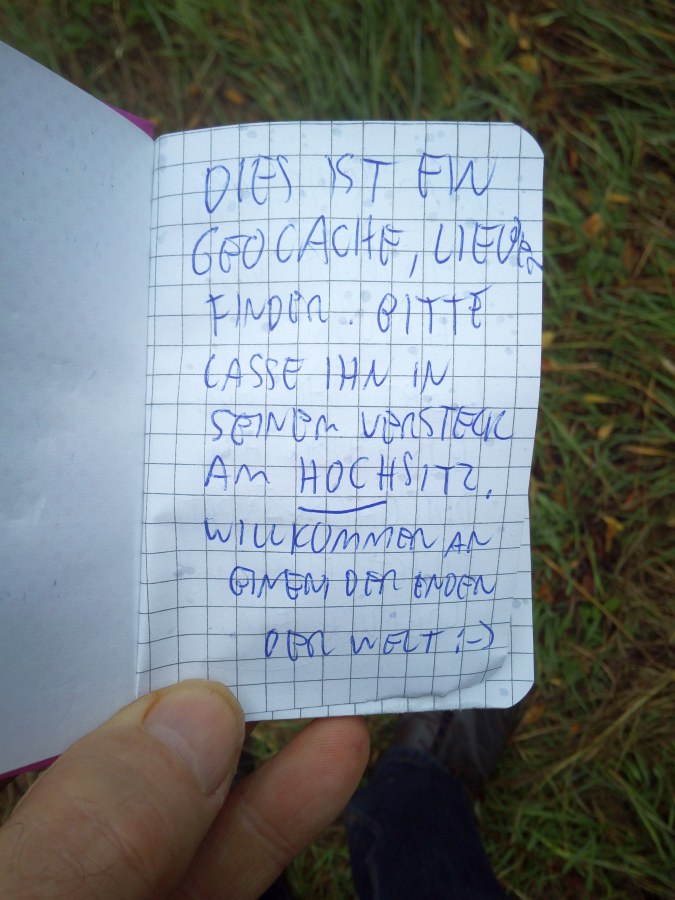 DIES IST EIN
GEOCACHE, LIEBER
FINDER. BITTE
LASSE IHN IN
SEINEM VERSTECK
AM HOCHSITZ.
WILLKOMMEN AN
EINEM DER ENDEN
DER WELT ;-)